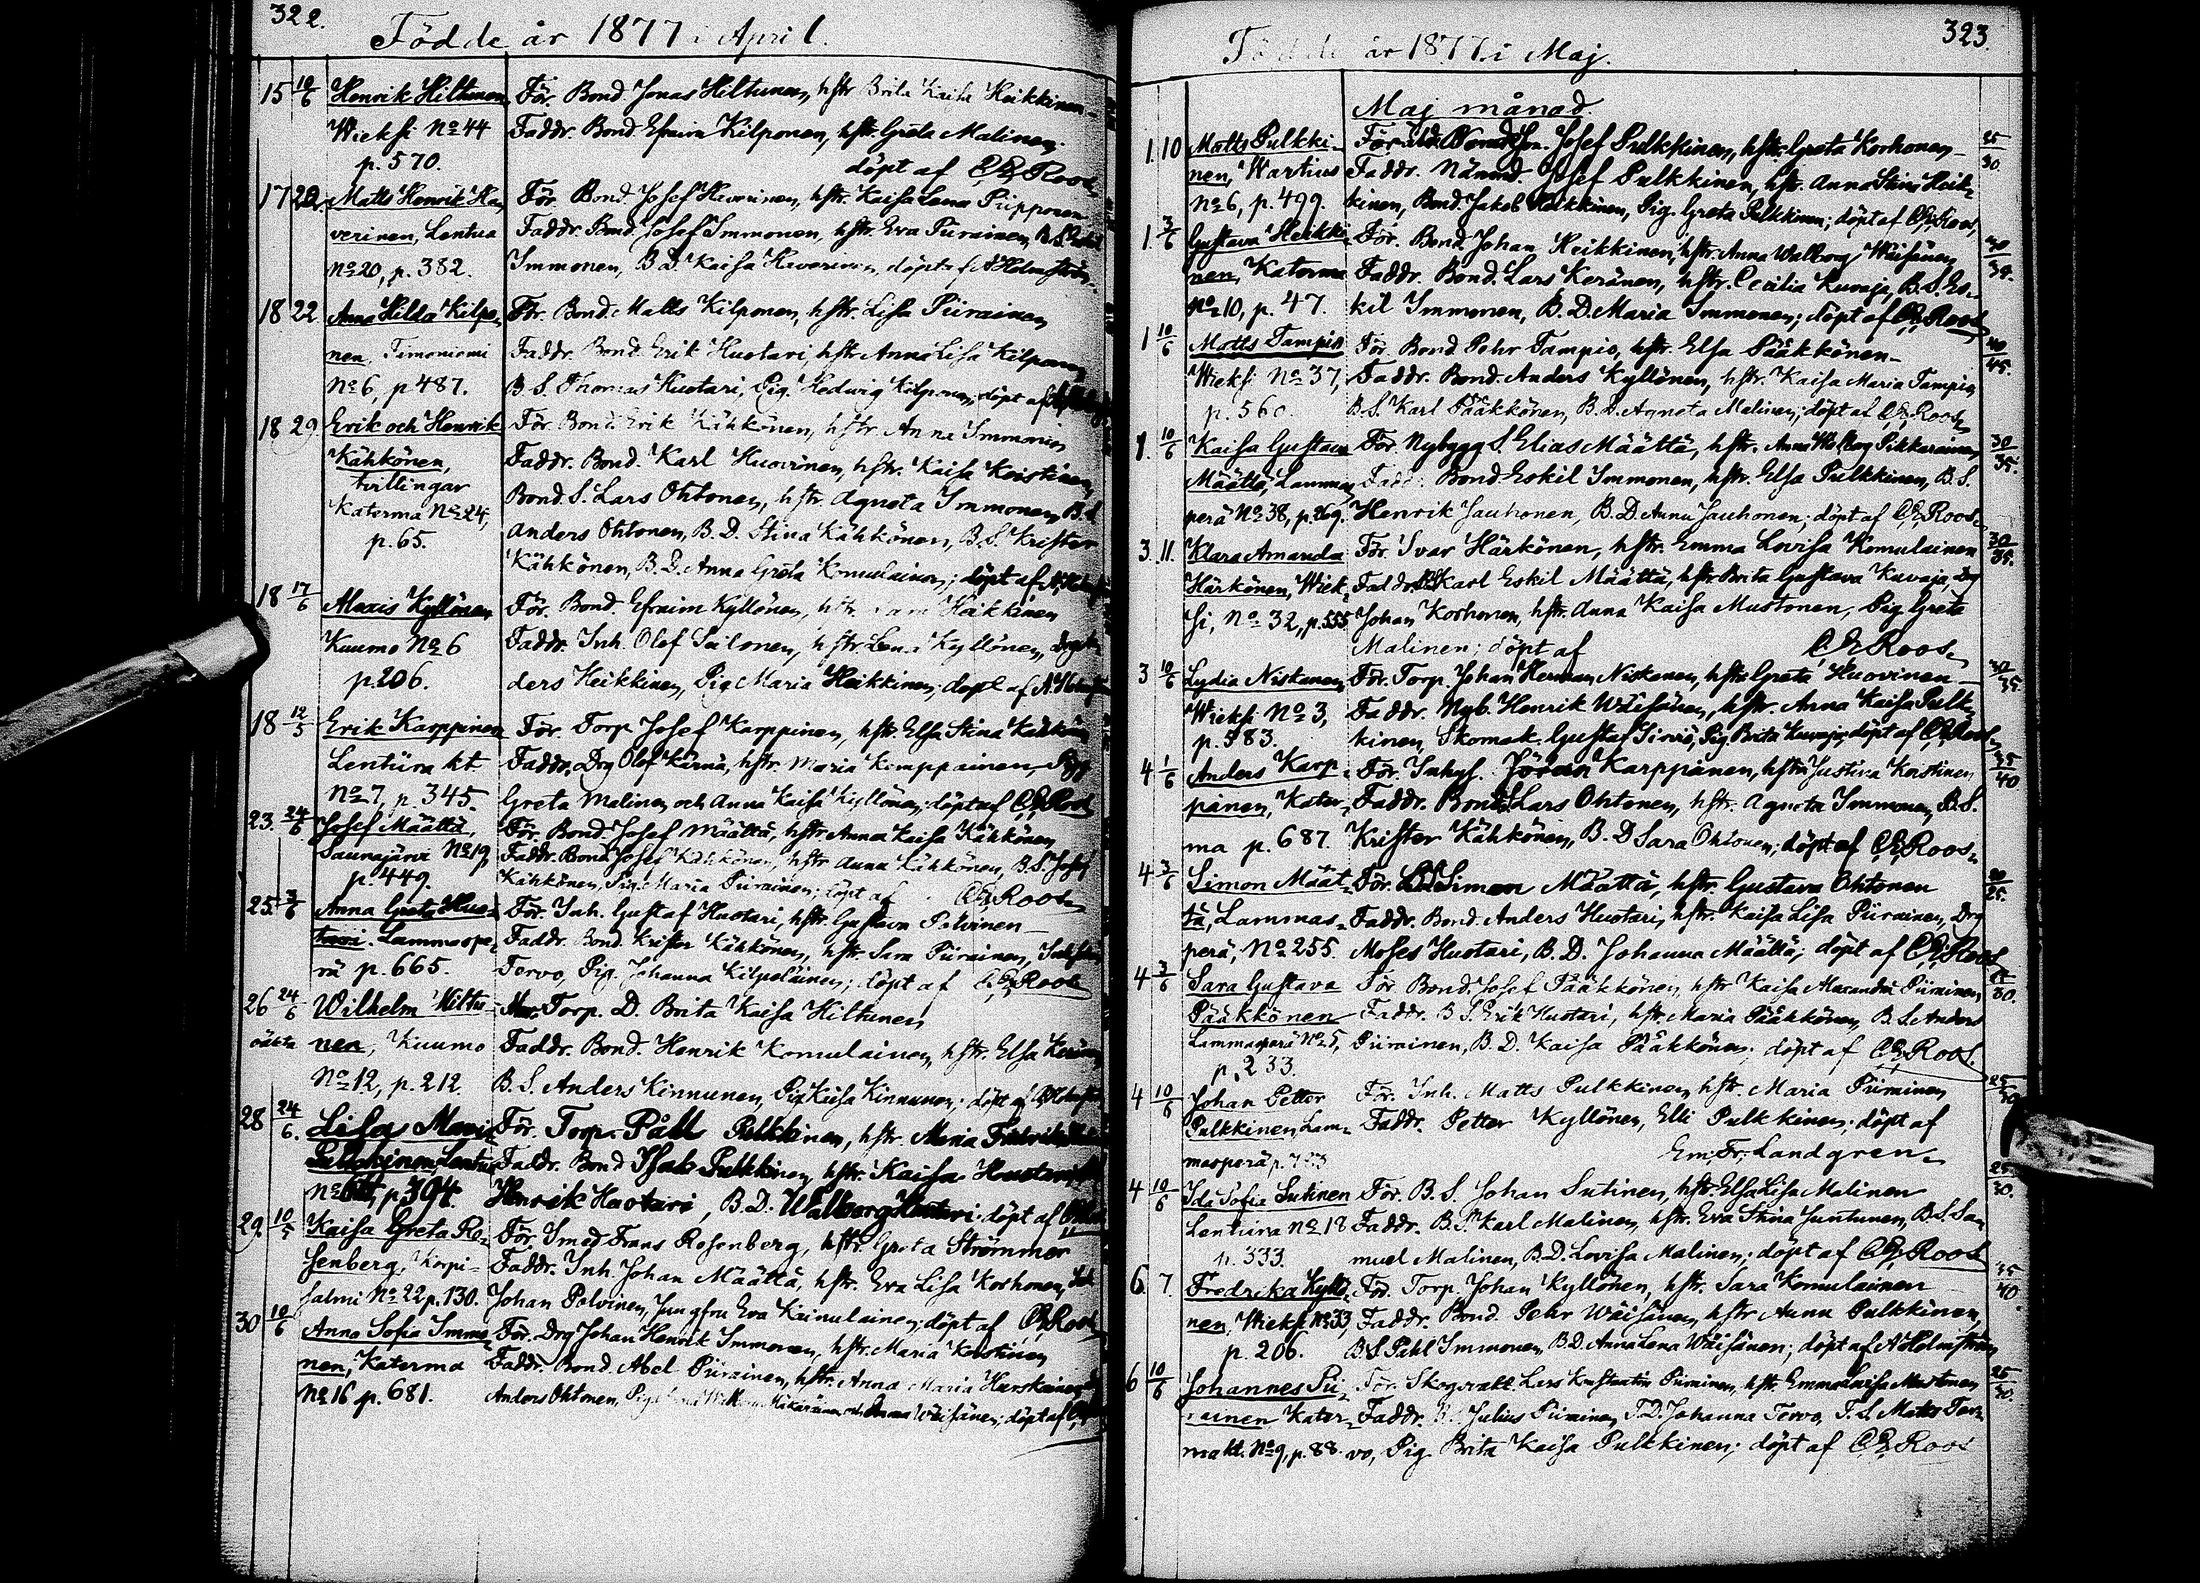 322.
Födde år 1877 i April.
15 10/6 Henrik Hiltunen För. Bond. Jonas Hiltunen, hstr Brita Kaisa Heikkinen
Wieksi No 44 Faddr. Bond. Efraim Kilponen, hstr. Greta Malinen.
p. 570. döpt af C. Roos
17 Matts Henrik Ha- För. Bond. Josef Haverinen, hstr. Kaisa Lena Piipponen
verinen, Lentua Faddr. Bond. Josef Immonen, hstr. Eva Piirainen, B.S.
No 20, p. 382. Immonen, B.D. Kaisa Haverinen, döpt af A Holmström
18 22 Anna Hilda Kilpo- För. Bond. Matts Kilponen, hstr. Lisa Piirainen
nen, Timoniemi Faddr. Bond. Erik Huotari, hstr Anna Lisa Kilponen
No 6, p 487. B S. Thomas Huotari, Pig. Hedwig Kilponen, döpt af
18 29 Erik och Henrik För. Bond. Erik Kähkönen, hstr. Anna Immonen
Kähkönen, Faddr. Bond. Karl Huovinen, hstr. Kaisa Koistinen,
tvillingar Bond. S. Lars Ohtonen, hstr. Agneta Immonen, B.S.
Katerma No 24, Anders Ohtonen, B.D. Stina Kähkönen, B.S. Krister
p. 65. Kähkönen, B.D. Anna Greta Komulainen; döpt af
18 17/6 Alexis Kyllönen För. Bond. Efraim Kyllönen, hstr. Sara Heikkinen
Kuumo No 6 Faddr. Inh. Olof Sulonen, hstr Lena Kyllönen,
p. 206. ders Heikkinen, Pig Maria Heikkinen; döpt af
18 12/5 Erik Karppinen För. Torp. Josef Karppinen, hstr. Elsa Stina
Lentiira kt. Faddr. Drg Olof Kärnä, hstr. Maria Kemppainen, Pig
No 7, p. 345. Greta Malinen och Anna Kaisa Kyllönen; döpt af C. Roos
23. 24/6 Josef Määttä, För. Bond. Josef Määttä, hstr Anna Kaisa Kähkönen,
Saunajärvi No 19, Faddr. Bond. Josef Kähkönen, hstr Anna Kähkönen, B.S. Josef
p. 449. Kähkönen, Pig. Maria Piirainen; döpt af C. Roos
25. 3/6 Anna Greta Huo- För. Inh. Gustaf Huotari, hstr. Gustava Polvinen
tari. Lammaspe- Faddr. Bond. Krister Kähkönen, hstr. Sara Piirainen,
rä p. 665. Torvo, Pig. Johanna Kilpeläinen; döpt af C. Roos
26 24/6 Wilhelm Hiltu- Torp. D. Brita Kaisa Hiltunen
oäkta nen, Kuumo Faddr. Bond. Henrik Komulainen, hstr. Elsa
No 12, p. 212. B.S. Anders Kinnunen, Pig Kaisa Kinnunen; döpt af
28 24/6. Lisa Maria För. Torp. Påhl Pulkkinen, hstr. Maria
Pulkkinen, Lentua Faddr. Bond Isak Pulkkinen, hstr. Kaisa Huotari,
p 394. Henrik Huotari, B.D. Walborg Huotari. döpt af
29. 10/5 Kaisa Greta Ro- För. Smed Frans Rosenberg, hstr. Greta Strömmer
senberg, Korpi- Faddr. Inh. Johan Määttä, hstr. Eva Lisa Korhonen,
salmi No 22 p. 130. Johan Polvinen, Jungfru Eva Keinulainen; döpt af C. Roos
30 10/6 Anna Sofia Immo- För. Drg Johan Henrik Immonen, hstr. Maria Koistinen
nen, Katerma Faddr. Bond. Abel Piirainen, hstr. Anna Maria Hurskainen,
No 16 p. 681. Anders Ohtonen, Anna Wäisänen; döpt af
323.
Födde år 1877 i Maj.
Maj månad.
1. 10 Matts Pulkki- För. Josef Pulkkinen, hstr. Greta Korhonen 25/30.
nen, Wartius Faddr. Nämnd. Josef Pulkkinen, hstr. Anna Stina Heik-
No 6, p. 499. kinen, Bond. Jakob Heikkinen, Pig. Greta Pulkkinen; döpt af C. Roos,
1 3/6 Gustava Heikki- För. Bond. Johan Heikkinen, hstr. Anna Walborg Wäisänen 30/34.
nen, Katerma Faddr. Bond. Lars Keränen, hstr. Cecilia Kuvaja, B.S. Es-
No 10, p. 47. kil Immonen, B.D. Maria Immonen; döpt af C. Roos
1 10/6 Matts Tampio För. Bond Pehr Tampio, hstr. Elsa Pääkkönen 40/45.
Wieksi No 37, Faddr. Bond. Anders Kyllönen, hstr. Kaisa Maria Tampio,
p. 560. B.S. Karl Pääkkönen, B.D. Agneta Malinen; döpt af C. Roos
1. 10/6 Kaisa Gustava För. Nybygg S. Elias Määttä, hstr. Anna Walborg Pikkarainen, 30/35.
Määttä, Lammas- Faddr. Bond Eskil Immonen, hstr. Elsa Pulkkinen, B.S.
perä No 38, p. 269. Henrik Jauhonen, B.D. Anna Jauhonen; döpt af C. Roos
3. 11. Klara Amanda För. Ivar Härkönen, hstr. Emma Lovisa Komulainen 30/35.
Härkönen, Wiek- Faddr. Karl Eskil Määttä, hstr Brita Gustava Kuvaja, Drg
si, No 32, p. 555 Johan Korhonen, hstr. Anna Kaisa Mustonen, Pig Greta
Malinen; döpt af C. Roos
3 10/6 Lydia Niskanen, För. Torp. Johan Herman Niskanen, hstr. Greta Huovinen 30/35.
Wieksi No 3, Faddr. Nyb. Henrik Wäisänen, hstr. Anna Kaisa Pulk-
p. 583. kinen, Skomak. Gustaf Sirviö, Pig. Brita Kuvaja; döpt af C. Roos
4 1/6 Anders Karp- För. Inhys. Jöran Karppanen, hstr. Justiva Koistinen 35/40
panen, Kater- Faddr. Bond. S. Lars Ohtonen, hstr. Agneta Immonen, B.S.
ma p. 687. Krister Kähkönen, B.D Sara Ohtonen; döpt af C. Roos
4 3/6 Simon Määt- För. BS Simon Määttä, hstr. Gustava Ohtonen 20/25.
tä, Lammas- Faddr. Bond. Anders Huotari, hstr. Kaisa Lisa Piirainen, Drg
perä, No 255. Moses Huotari, B.D. Johanna Määttä; döpt af C. Roos
4 3/6 Sara Gustava För Bond. Josef Pääkkönen, hstr Kaisa Alexandra Piirainen,
Pääkkönen Faddr. B.S. Erik Huotari, hstr. Maria Pääkkönen, B.S. Anders
Lammasperä No 5, Piirainen, B.D. Kaisa Pääkkönen; döpt af C. Roos.
p. 233.
4 10/6 Johan Petter För. Inh. Matts Pulkkinen, hstr. Maria Piirainen 25/30
Pulkkinen, Lam- Faddr. Petter Kyllönen, Elli Pulkkinen; döpt af
masperä p. Em. Fr. Landgren
4 10/6 Ida Sofia Sutinen För. B.S. Johan Sutinen, hstr. Elsa Lisa Malinen 25/30.
Lentiira No 18 Faddr. B.S. Karl Malinen, hstr. Eva Stina Juntunen, B.S. Sa-
p. 333. muel Malinen, B.D. Lovisa Malinen; döpt af C. Roos
6. 7. Fredrika Kyllö- För. Torp. Johan Kyllönen, hstr. Sara Komulainen 35/40.
nen, Wieksi No 33, Faddr. Bond. Pehr Wäisänen, hstr Anna Pulkkinen,
p. 206. B.S. Pahl Immonen, B.D. Anna Lena Wäisänen; döpt af A Holmström
6 10/6 Johannes Pii- För. Skogsvakt. Lars Konstantin Piirainen, hstr. Emma Lovisa Mustonen 25/30.
rainen Kater- Faddr. Julius Piirainen, T.D. Johanna Tervo, T.S. Matts Ter-
ma kt. No 9, p. 88. vo, Pig. Brita Kaisa Pulkkinen; döpt af C. Roos